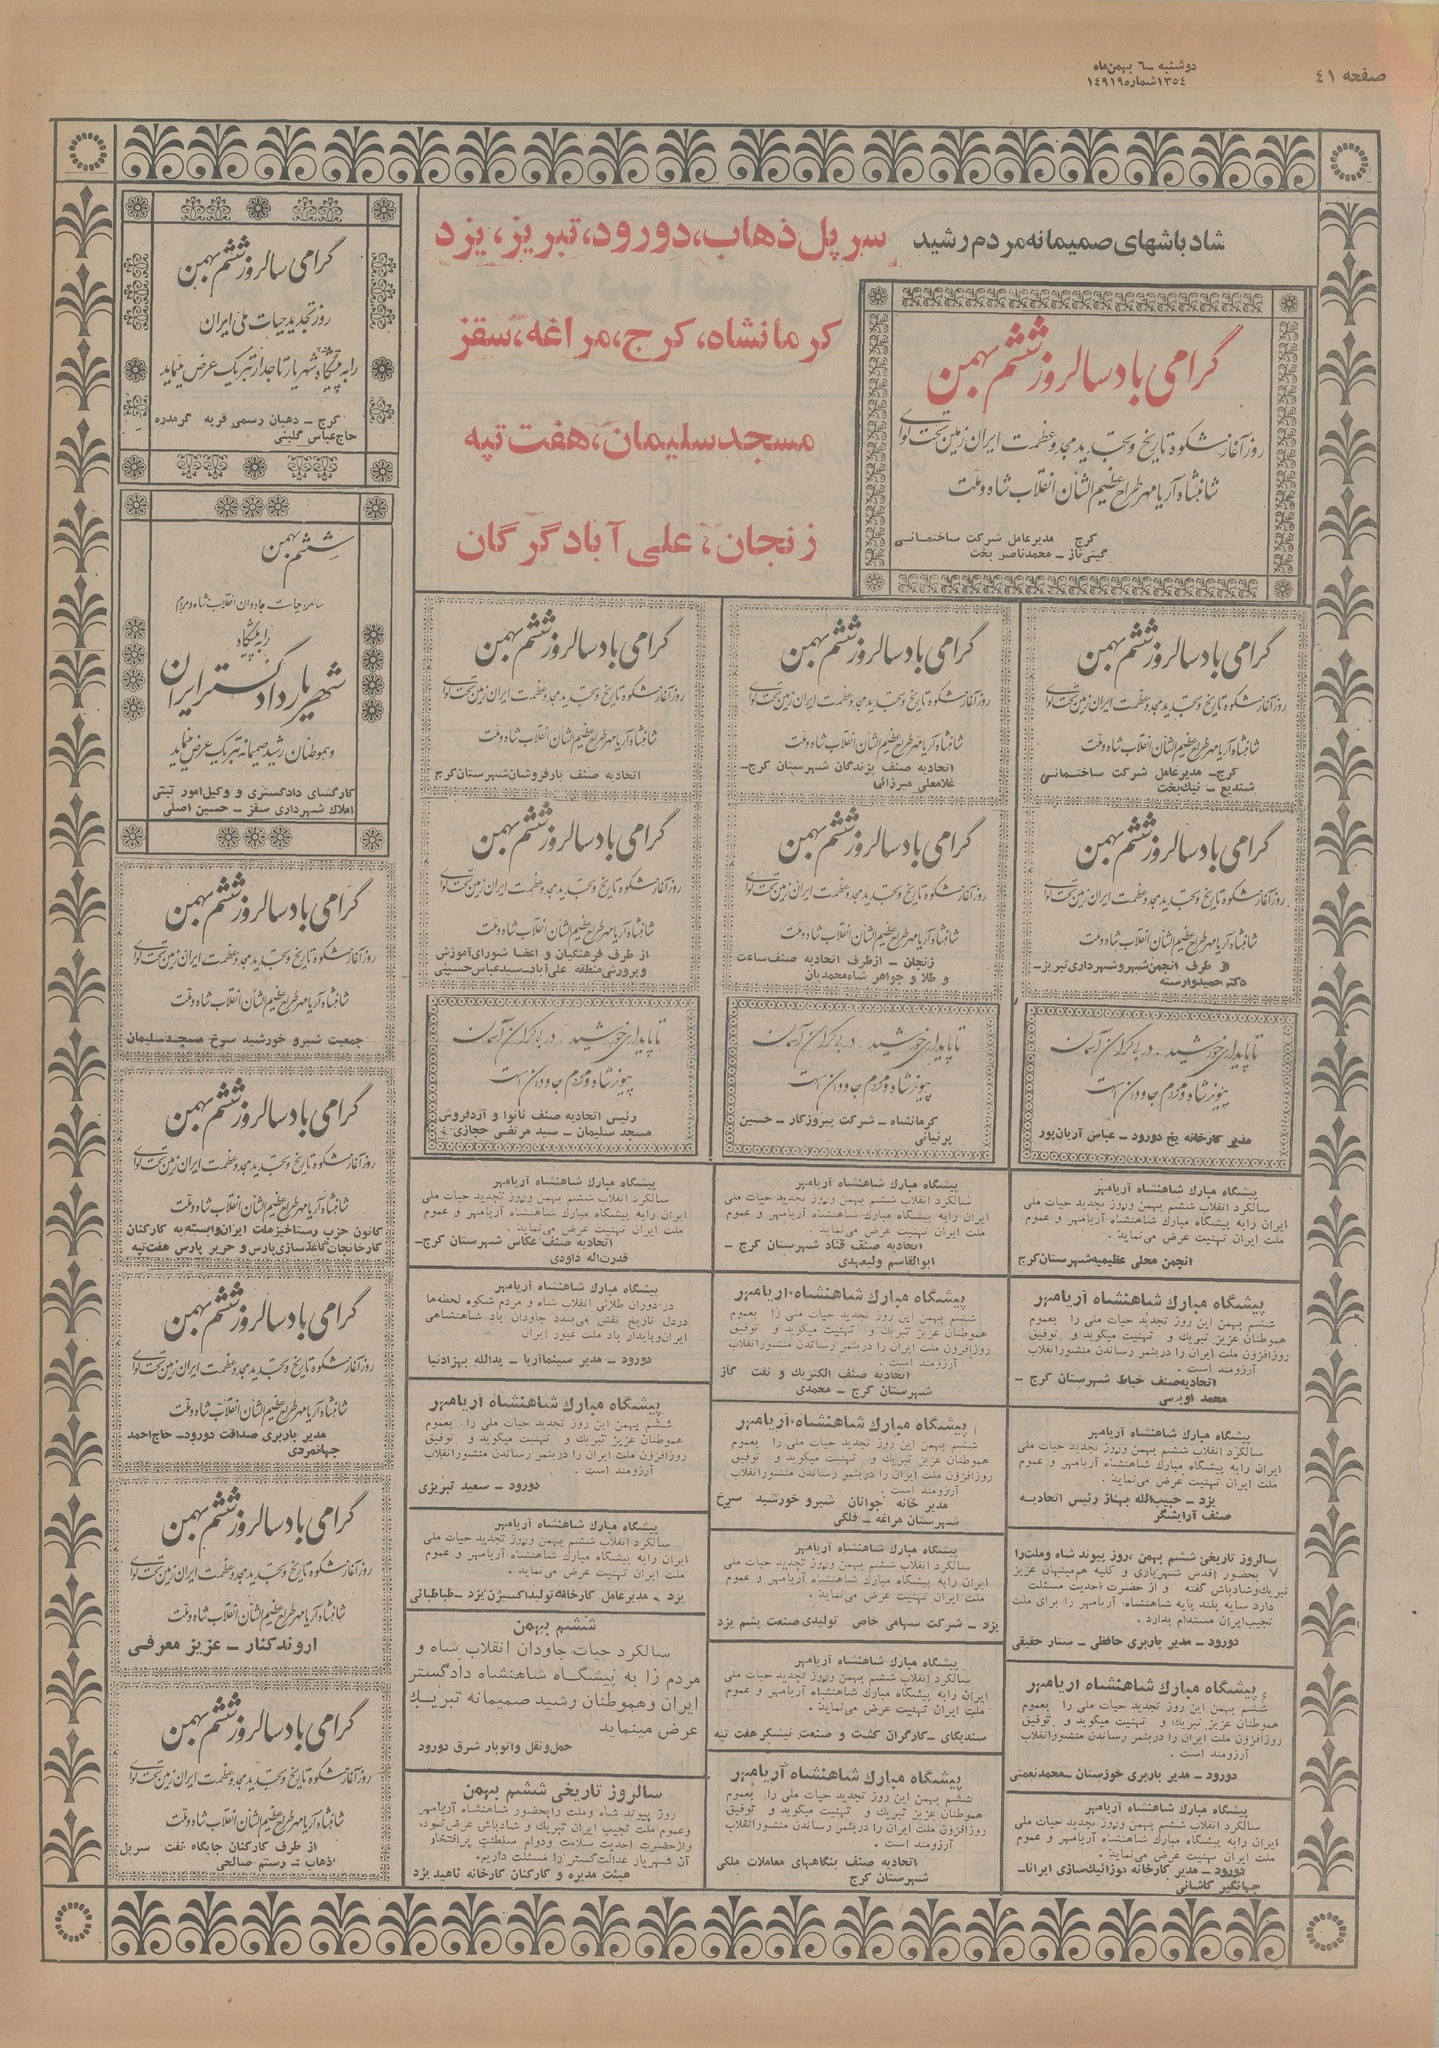 صفحه ٤١
دوشنبه ـ ٦ بهمن ماه
١٣٥٤ شماره ١٤٩١٩
شادباشهای صمیمانه مردم رشید سرپل ذهاب، دورود، تبریز، یزد
کرمانشاه، کرج، مراغه، سقز
مسجدسلیمان، هفت تپه
زنجان، علی آباد گرگان
گرامی باد سالروز ششم بهمن
روز آغاز شکوه تاریخ و تجدید مجد و عظمت ایران زمین تحت لوای
شاهنشاه آریامهر طراح عظیم الشان انقلاب شاه و ملت
کرج مدیرعامل شرکت ساختمانی
گیتی ناز ـ محمدناصر بخت
گرامی باد سالروز ششم بهمن
روز آغاز شکوه تاریخ و تجدید مجد و عظمت ایران زمین تحت لوای
شاهنشاه آریامهر طراح عظیم الشان انقلاب شاه و ملت
کرج ـ مدیرعامل شرکت ساختمانی
نیک بخت
گرامی باد سالروز ششم بهمن
روز آغاز شکوه تاریخ و تجدید مجد و عظمت ایران زمین تحت لوای
شاهنشاه آریامهر طراح عظیم الشان انقلاب شاه و ملت
از طرف انجمن شهر و شهرداری تبریز ـ
دکتر حمید وارسته
تا پایداری خورشید، در بیکران آسمان
پیوند شاه و مردم جاودان است
مدیر کارخانه یخ دورود ـ عباس آریان پور
پیشگاه مبارک شاهنشاه آریامهر
سالگرد انقلاب ششم بهمن و روز تجدید حیات ملی
ایران را به پیشگاه مبارک شاهنشاه آریامهر و عموم
ملت ایران تهنیت عرض می‌نماید.
انجمن محلی عظیمیه شهرستان کرج
پیشگاه مبارک شاهنشاه آریامهر
ششم بهمن این روز تجدید حیات ملی را بعموم
هموطنان عزیز تبریک و تهنیت میگوید و توفیق
روزافزون ملت ایران را در بثمر رساندن منشور انقلاب
آرزومند است.
اتحادیه صنف خیاط شهرستان کرج ـ
محمد اویسی
پیشگاه مبارک شاهنشاه آریامهر
سالگرد انقلاب ششم بهمن و روز تجدید حیات ملی
ایران را به پیشگاه مبارک شاهنشاه آریامهر و عموم
ملت ایران تهنیت عرض می‌نماید.
یزد ـ حبیب‌الله بهناز رئیس اتحادیه
صنف آرایشگر
سالروز تاریخی ششم بهمن، روز پیوند شاه و ملت را
بحضور اقدس شهریاری و کلیه هم میهنان عزیز
تبریک و شادباش گفته و از حضرت احدیت مسئلت
دارد سایه بلند پایه شاهنشاه آریامهر را برای ملت
نجیب ایران مستدام بدارد.
دورود ـ مدیر باربری حافظی ـ ستار حقیقی
پیشگاه مبارک شاهنشاه آریامهر
ششم بهمن این روز تجدید حیات ملی را بعموم
هموطنان عزیز تبریک و تهنیت میگوید و توفیق
روزافزون ملت ایران را در بثمر رساندن منشور انقلاب
آرزومند است.
دورود ـ مدیر باربری خوزستان ـ محمد نعمتی
پیشگاه مبارک شاهنشاه آریامهر
سالگرد انقلاب ششم بهمن و روز تجدید حیات ملی
ایران را به پیشگاه مبارک شاهنشاه آریامهر و عموم
ملت ایران تهنیت عرض می‌نماید.
دورود ـ مدیر کارخانه موزائیک سازی ایرانا ـ
جهانگیر کاشانی
گرامی باد سالروز ششم بهمن
روز آغاز شکوه تاریخ و تجدید مجد و عظمت ایران زمین تحت لوای
شاهنشاه آریامهر طراح عظیم الشان انقلاب شاه و ملت
اتحادیه صنف پزندگان شهرستان کرج ـ
غلامعلی میرزائی
گرامی باد سالروز ششم بهمن
روز آغاز شکوه تاریخ و تجدید مجد و عظمت ایران زمین تحت لوای
شاهنشاه آریامهر طراح عظیم الشان انقلاب شاه و ملت
زنجان ـ از طرف اتحادیه صنف ساعت
و طلا و جواهر شاه محمدیان
تا پایداری خورشید، در بیکران آسمان
پیوند شاه و مردم جاودان است
کرمانشاه ـ شرکت پیروزکار ـ حسین
پرنیانی
پیشگاه مبارک شاهنشاه آریامهر
سالگرد انقلاب ششم بهمن و روز تجدید حیات ملی
ایران را به پیشگاه مبارک شاهنشاه آریامهر و عموم
ملت ایران تهنیت عرض می‌نماید.
اتحادیه صنف قناد شهرستان کرج ـ
ابوالقاسم ولیعهدی
پیشگاه مبارک شاهنشاه آریامهر
ششم بهمن این روز تجدید حیات ملی را بعموم
هموطنان عزیز تبریک و تهنیت میگوید و توفیق
روزافزون ملت ایران را در بثمر رساندن منشور انقلاب
آرزومند است.
اتحادیه صنف الکتریک و نفت گاز
شهرستان کرج ـ محمدی
پیشگاه مبارک شاهنشاه آریامهر
ششم بهمن این روز تجدید حیات ملی را بعموم
هموطنان عزیز تبریک و تهنیت میگوید و توفیق
روزافزون ملت ایران را در بثمر رساندن منشور انقلاب
آرزومند است.
مدیر خانه جوانان شیر و خورشید سرخ
شهرستان مراغه ـ فلکی
پیشگاه مبارک شاهنشاه آریامهر
سالگرد انقلاب ششم بهمن و روز تجدید حیات ملی
ایران را به پیشگاه مبارک شاهنشاه آریامهر و عموم
ملت ایران تهنیت عرض می‌نماید.
یزد ـ شرکت سهامی خاص تولیدی صنعت پشم یزد
پیشگاه مبارک شاهنشاه آریامهر
سالگرد انقلاب ششم بهمن و روز تجدید حیات ملی
ایران را به پیشگاه مبارک شاهنشاه آریامهر و عموم
ملت ایران تهنیت عرض می‌نماید.
سندیکای ـ کارگران کشت و صنعت نیشکر هفت تپه
پیشگاه مبارک شاهنشاه آریامهر
ششم بهمن این روز تجدید حیات ملی را بعموم
هموطنان عزیز تبریک و تهنیت میگوید و توفیق
روزافزون ملت ایران را در بثمر رساندن منشور انقلاب
آرزومند است.
اتحادیه صنف بنگاههای معاملات ملکی
شهرستان کرج
گرامی باد سالروز ششم بهمن
روز آغاز شکوه تاریخ و تجدید مجد و عظمت ایران زمین تحت لوای
شاهنشاه آریامهر طراح عظیم الشان انقلاب شاه و ملت
اتحادیه صنف بارفروشان شهرستان کرج
گرامی باد سالروز ششم بهمن
روز آغاز شکوه تاریخ و تجدید مجد و عظمت ایران زمین تحت لوای
شاهنشاه آریامهر طراح عظیم الشان انقلاب شاه و ملت
از طرف فرهنگیان و اعضا شورای آموزش
و پرورش منطقه علی آباد ـ سید عباس حسینی
تا پایداری خورشید، در بیکران آسمان
پیوند شاه و مردم جاودان است
رئیس اتحادیه صنف نانوا و آردفروش
مسجد سلیمان ـ سید مرتضی حجازی
پیشگاه مبارک شاهنشاه آریامهر
سالگرد انقلاب ششم بهمن و روز تجدید حیات ملی
ایران را به پیشگاه مبارک شاهنشاه آریامهر و عموم
ملت ایران تهنیت عرض می‌نماید.
اتحادیه صنف عکاس شهرستان کرج ـ
قدرت‌اله داودی
پیشگاه مبارک شاهنشاه آریامهر
در دوران طلائی انقلاب شاه و مردم شکوه لحظه‌ها
در دل تاریخ نقش می‌بندد جاودان باد شاهنشاهی
ایران و پایدار باد ملت غیور ایران
دورود ـ مدیر سینما آریا ـ یدالله بهزادنیا
پیشگاه مبارک شاهنشاه آریامهر
ششم بهمن این روز تجدید حیات ملی را بعموم
هموطنان عزیز تبریک و تهنیت میگوید و توفیق
روزافزون ملت ایران را در بثمر رساندن منشور انقلاب
آرزومند است.
دورود ـ سعید تبریزی
پیشگاه مبارک شاهنشاه آریامهر
سالگرد انقلاب ششم بهمن و روز تجدید حیات ملی
ایران را به پیشگاه مبارک شاهنشاه آریامهر و عموم
ملت ایران تهنیت عرض می‌نماید.
یزد، مدیرعامل کارخانه تولید اکسیژن یزد ـ طباطبائی
ششم بهمن
سالگرد حیات جاودان انقلاب شاه و
مردم را به پیشگاه شاهنشاه دادگستر
ایران و هموطنان رشید صمیمانه تبریک
عرض مینماید
حمل و نقل و اتوبار شرق دورود
سالروز تاریخی ششم بهمن
روز پیوند شاه و ملت را بحضور شاهنشاه آریامهر
و عموم ملت نجیب ایران تبریک و شادباش عرض نموده،
و از حضرت احدیت سلامت و دوام سلطنت پرافتخار
آن شهریار عدالت گستر را مسئلت داریم.
هیئت مدیره و کارکنان کارخانه ناهید یزد
گرامی سالروز ششم بهمن
روز تجدید حیات ملی ایران
را به پیشگاه شهریار تاجدار تبریک عرض مینماید
کرج ـ دهبان رسمی قریه گرمدره
حاج عباس گلینی
ششم بهمن
سالگرد حیات جاودان انقلاب شاه و مردم
را به پیشگاه
شهریار دادگستر ایران
و هموطنان رشید صمیمانه تبریک عرض مینماید
کارگشای دادگستری و وکیل امور ثبتی
املاک شهرداری سقز ـ حسین اصلی
گرامی باد سالروز ششم بهمن
روز آغاز شکوه تاریخ و تجدید مجد و عظمت ایران زمین تحت لوای
شاهنشاه آریامهر طراح عظیم الشان انقلاب شاه و ملت
جمعیت شیر و خورشید سرخ مسجد سلیمان
گرامی باد سالروز ششم بهمن
روز آغاز شکوه تاریخ و تجدید مجد و عظمت ایران زمین تحت لوای
شاهنشاه آریامهر طراح عظیم الشان انقلاب شاه و ملت
کانون حزب رستاخیز ملت ایران وابسته به کارکنان
کارخانجات کاغذسازی پارس و حریر پارس هفت تپه
گرامی باد سالروز ششم بهمن
روز آغاز شکوه تاریخ و تجدید مجد و عظمت ایران زمین تحت لوای
شاهنشاه آریامهر طراح عظیم الشان انقلاب شاه و ملت
مدیر باربری صداقت دورود ـ حاج احمد
جهانمردی
گرامی باد سالروز ششم بهمن
روز آغاز شکوه تاریخ و تجدید مجد و عظمت ایران زمین تحت لوای
شاهنشاه آریامهر طراح عظیم الشان انقلاب شاه و ملت
اروندکنار ـ عزیز معرفی
گرامی باد سالروز ششم بهمن
روز آغاز شکوه تاریخ و تجدید مجد و عظمت ایران زمین تحت لوای
شاهنشاه آریامهر طراح عظیم الشان انقلاب شاه و ملت
از طرف کارکنان جایگاه نفت سرپل
ذهاب ـ رستم صالحی